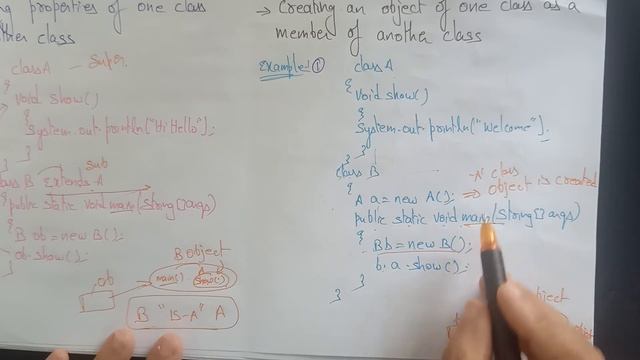 properties of one class
other class
class A - Super
{
void show()
{
System.out.println("Hi Hello");
}
}
Sub
class B extends A
{ public static void main(String []args)
{
B ob = new B();
ob.show();
}
B object
ob
main() show()
B "IS-A" A
→ Creating an object of one class as a
member of another class
Example:- ①
class A
{
void show()
{
System.out.println("Welcome");
}
}
class B
{
'A' class
A a = new A(); ⇒ object is created
public static void main(String []args)
{
B b = new B();
b.a.show();
}
}
object